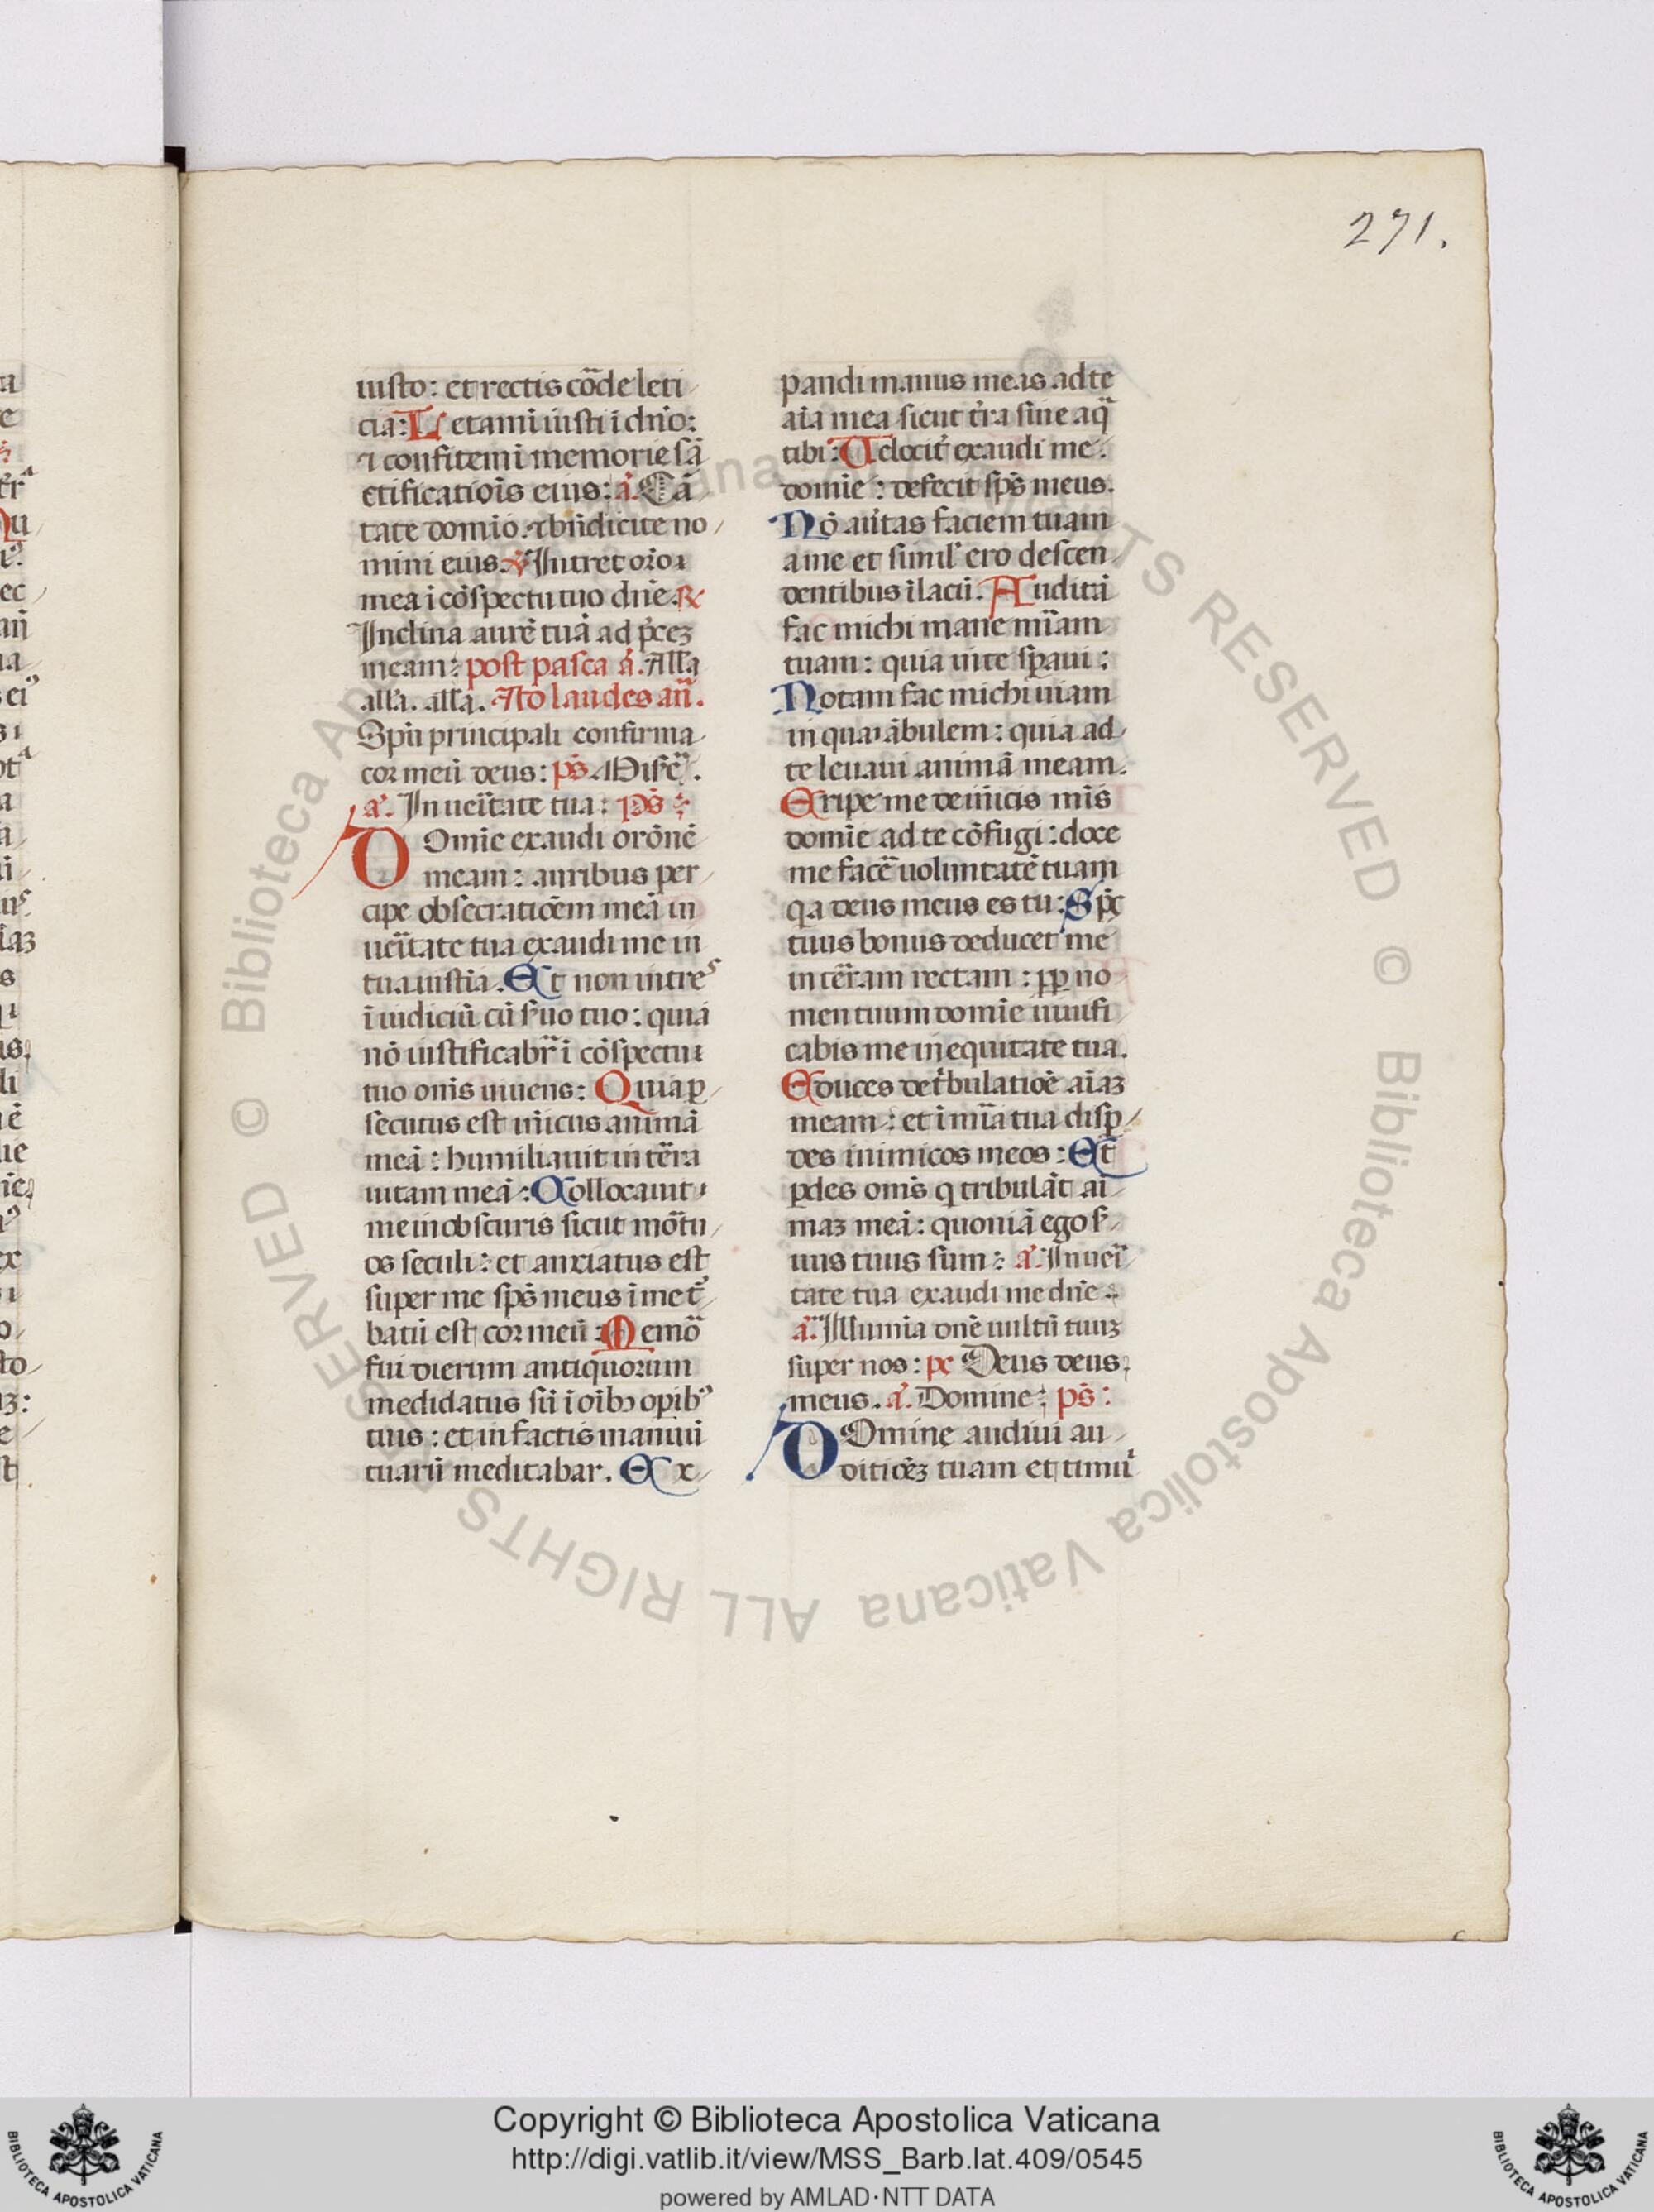 271.
iusto: et rectis cōde leti
cia: Letamĩ iusti ĩ dño:
⁊ confitemĩ memorie sā
ctificatiois eius: a. Cā
tate domio. ⁊ bñdicite no
mini eius. ℣ Intret oro
mea ĩ cōspectu tuo dñe. ℟
Inclina aurē tuā ad p̄cez
meam: post pasca a. Alľa
alľa. alľa. Ad laudes añ.
Spū principali confirma
cor meū deus: ps. Misere.
a. In ueritate tua: ps:
Domie exaudi orōnē
meam: auribus per
cipe obsecratiōem meā in
ueritate tua exaudi me in
tua iustia. Et non intres
ĩ iudiciū cū s̃uo tuo: quia
nō iustificabr̃ ĩ cōspectu
tuo om̄is uiuens: Quia ꝑ
secutus est inĩcus animā
meā: humiliauit in tēra
uitam meā: Collocauit
me in obscuris sicut mōtu
os seculi: et anxiatus est
super me sp̄s meus ĩ me t̃
batū est cor meū: Memō
fui dierum antiquorum
medidatus sū ĩ oĩbꝫ opibꝰ
tuis: et in factis manuū
tuarū meditabar. Ex
pandi manus meas ad te
aĩa mea sicut t̃ra sine aq̃
tibi: Velocit̃ exaudi me
domie: defecit sp̄s meus.
Nō au̾tas faciem tuam
a me et similꝰ ero descen
dentibus ĩ lacū. Auditā
fac michi mane m̄iam
tuam: quia in te sꝑaui:
Notam fac michi uiam
in qua ābulem: quia ad
te leuaui animā meam.
Eripe me de inĩcis m̄is
domie ad te cōfugi: doce
me facē uoluntatē tuam
qa deus meus es tu: Sp̄c
tuus bonus deducet me
in tēram rectam: ꝓp no
men tuum domie uiuifi
cabis me in equitate tua.
Educes de t̾bulatioē aĩaz
meam: et ĩ m̄ia tua disꝑ
des inimicos meos: Et
ꝑdes om̄s q tribulāt ai
maz meā: quoniā ego s̾
uus tuus sum: a. In ueri
tate tua exaudi me dñe.
a. Illumia dñe uultū tuuz
super nos: ps Deus deus
meus. a. Domine: ps:
Domine audiui au
ditiōez tuam et timui
Copyright © Biblioteca Apostolica Vaticana
http://digi.vatlib.it/view/MSS_Barb.lat.409/0545
powered by AMLAD·NTT DATA
BIBLIOTECA APOSTOLICA VATICANA
BIBLIOTECA APOSTOLICA VATICANA